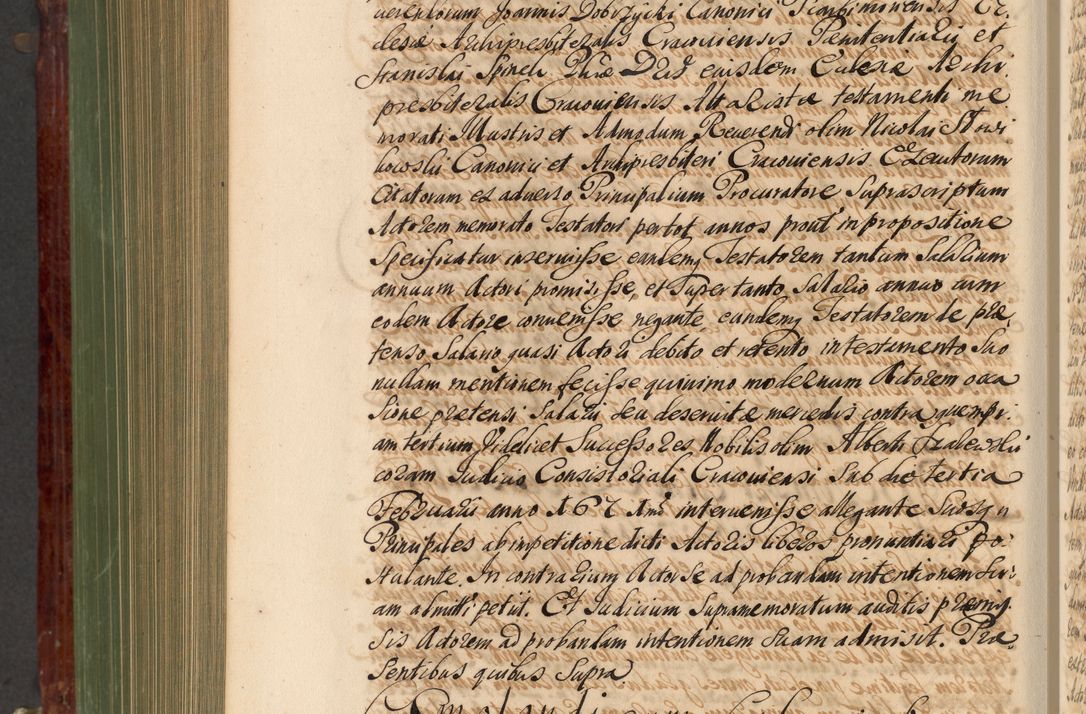 uerendorum Joannis Dobrzycki Canonici Scarbimiriensis Ec
clesiæ Archipresbiteralis Cracouiensis Pænitentiarii et
Stanislai Spinek Phiæ D ejusdem Ecclesiæ Archi
presbiteralis Cracouiensis Altaristæ testamenti me
morati Illustris et Admodum Reuerendi olim Nicolai Słowi
kowski Canonici et Archipresbiteri Cracouiensis Executorum
Citatorum ex aduerso Principalium Procuratore Suprascriptum
Actorem memorato Testatori per tot annos prout in propositione
Specificatur inseruisse eundemq Testatorem tantum Salarium
annuum Actori promisisse, et Super tanto Salario annuo cum
eodem Actore conuenisse negante, eundemq Testatorem de præ
tenso Salario quasi Actori debito et retento in testamento Suo
nullam mentionem fecisse quinimo modernum Actorem occa
sione prætensi Salarii seu deseruitæ mercedis contra quempi
am tertium Videlicet Successores Nobilis olim Alberti
coram Judicio Consistoriali Cracouiensi Sub die tertia
Februarii anno 167 interuenisse allegante Suosq
Principales ab impetitione dicti Actoris liberos pronuntiari po:
stulante. In contrarium Actor se ad probandam intentionem Su:
am admitti petit. Et Judicium Supramemoratum auditis præmis
sis Actorem ad probandam intentionem Suam admisit. Præ
sentibus quibus Supra